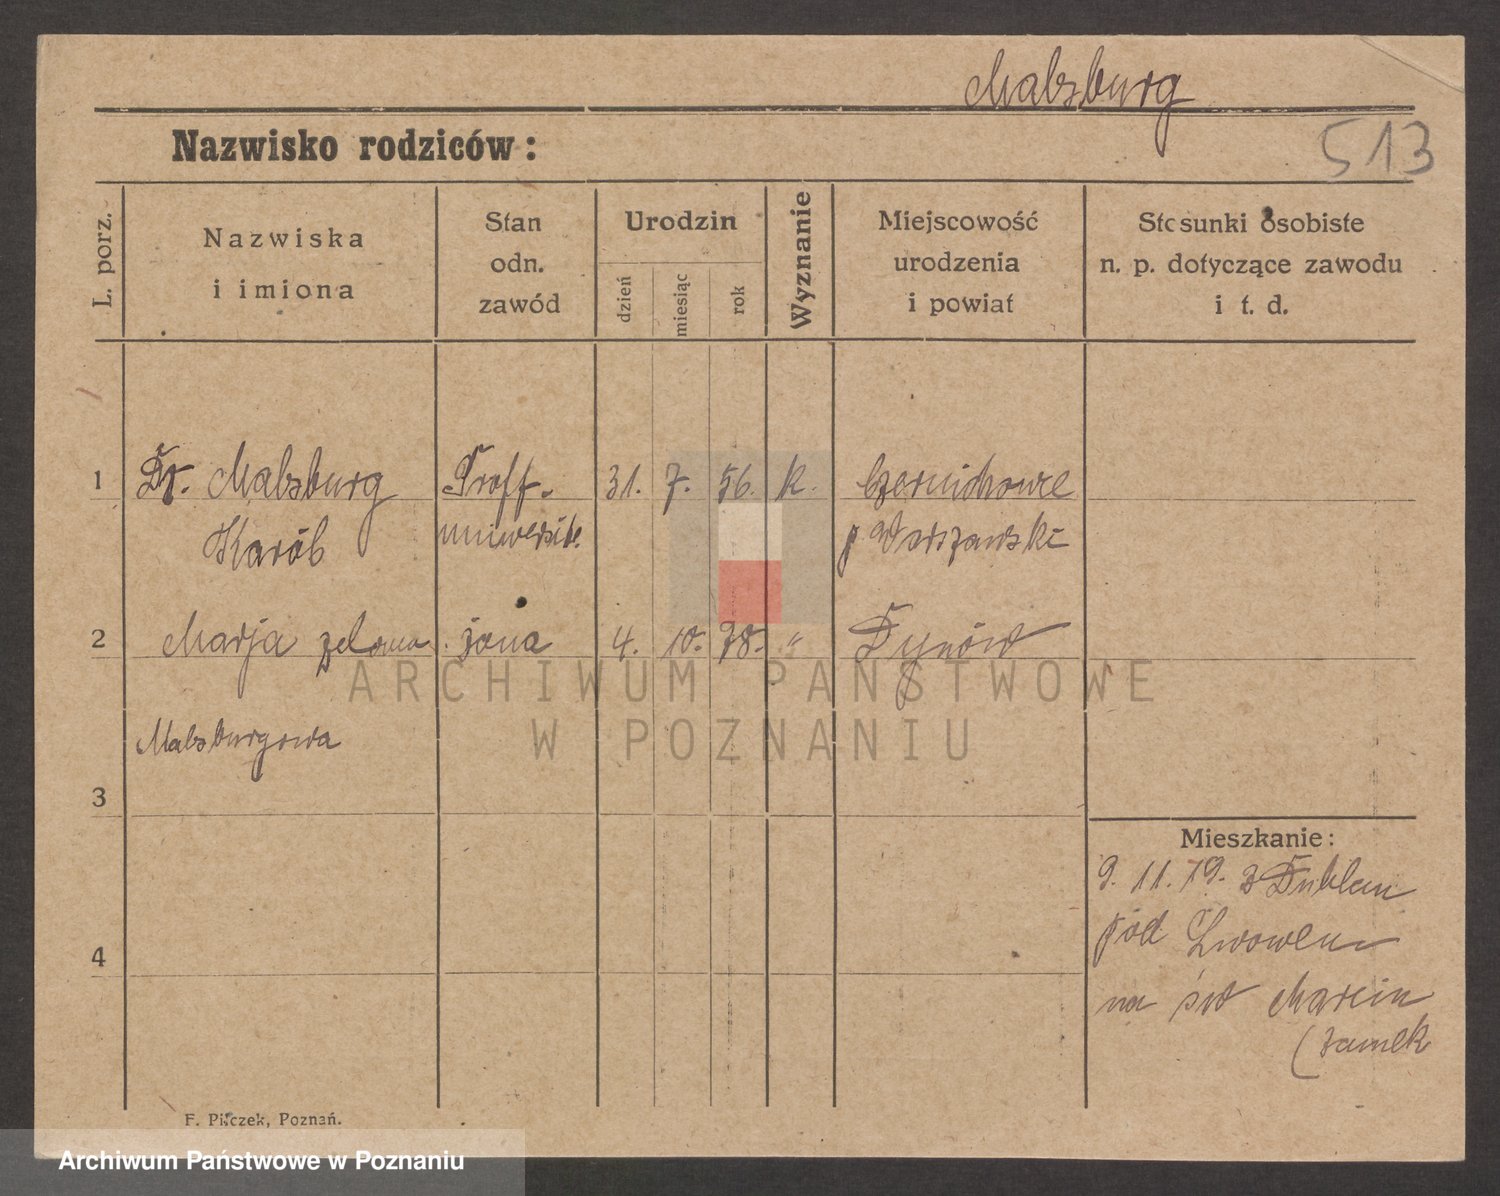 Malsburg
Nazwisko rodziców:
513
L. porz.
Nazwiska
i imiona
Stan
odn.
zawód
Urodzin
dzień
miesiąc
rok
Wyznanie
Miejscowość
urodzenia
i powiat
Stosunki osobiste
n. p. dotyczące zawodu
i t. d.
1 Dr. Malsburg Proff. 31. 7. 56. K. Czernichowce
Karól uniwersite. p Warszawski
2 Marja żona 4. 10. 78. " Dynów
Malsburgowa
3
Mieszkanie:
9. 11. 19. z Dublan
pód Lwowem
4
na św Marcin
(zamek
F. Pilczek, Poznań.
ARCHIWUM PAŃSTWOWE
W POZNANIU
Archiwum Państwowe w Poznaniu